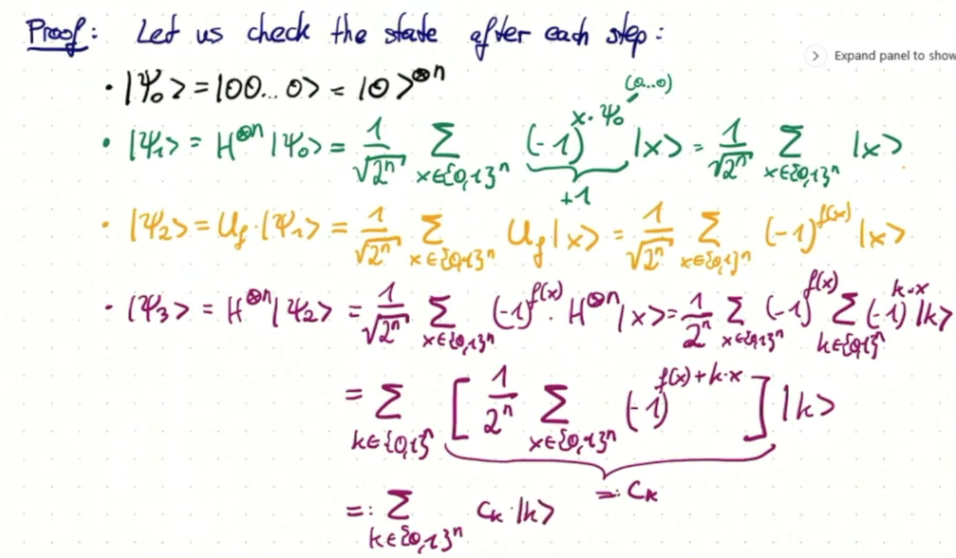 Proof: Let us check the state after each step:
Expand panel to show
• |Ψ₀> = |00...0> = |0>^⊗n
• |Ψ₁> = H^⊗n |Ψ₀> = 1/√2ⁿ Σ_{x∈{0,1}ⁿ} (-1)^{x·Ψ₀} |x> = 1/√2ⁿ Σ_{x∈{0,1}ⁿ} |x>
(0...0)
+1
• |Ψ₂> = U_f·|Ψ₁> = 1/√2ⁿ Σ_{x∈{0,1}ⁿ} U_f |x> = 1/√2ⁿ Σ_{x∈{0,1}ⁿ} (-1)^{f(x)} |x>
• |Ψ₃> = H^⊗n |Ψ₂> = 1/√2ⁿ Σ_{x∈{0,1}ⁿ} (-1)^{f(x)} · H^⊗n |x> = 1/2ⁿ Σ_{x∈{0,1}ⁿ} (-1)^{f(x)} Σ_{k∈{0,1}ⁿ} (-1)^{k·x} |k>
= Σ_{k∈{0,1}ⁿ} [ 1/2ⁿ Σ_{x∈{0,1}ⁿ} (-1)^{f(x)+k·x} ] |k>
=: C_k
=: Σ_{k∈{0,1}ⁿ} C_k · |k>